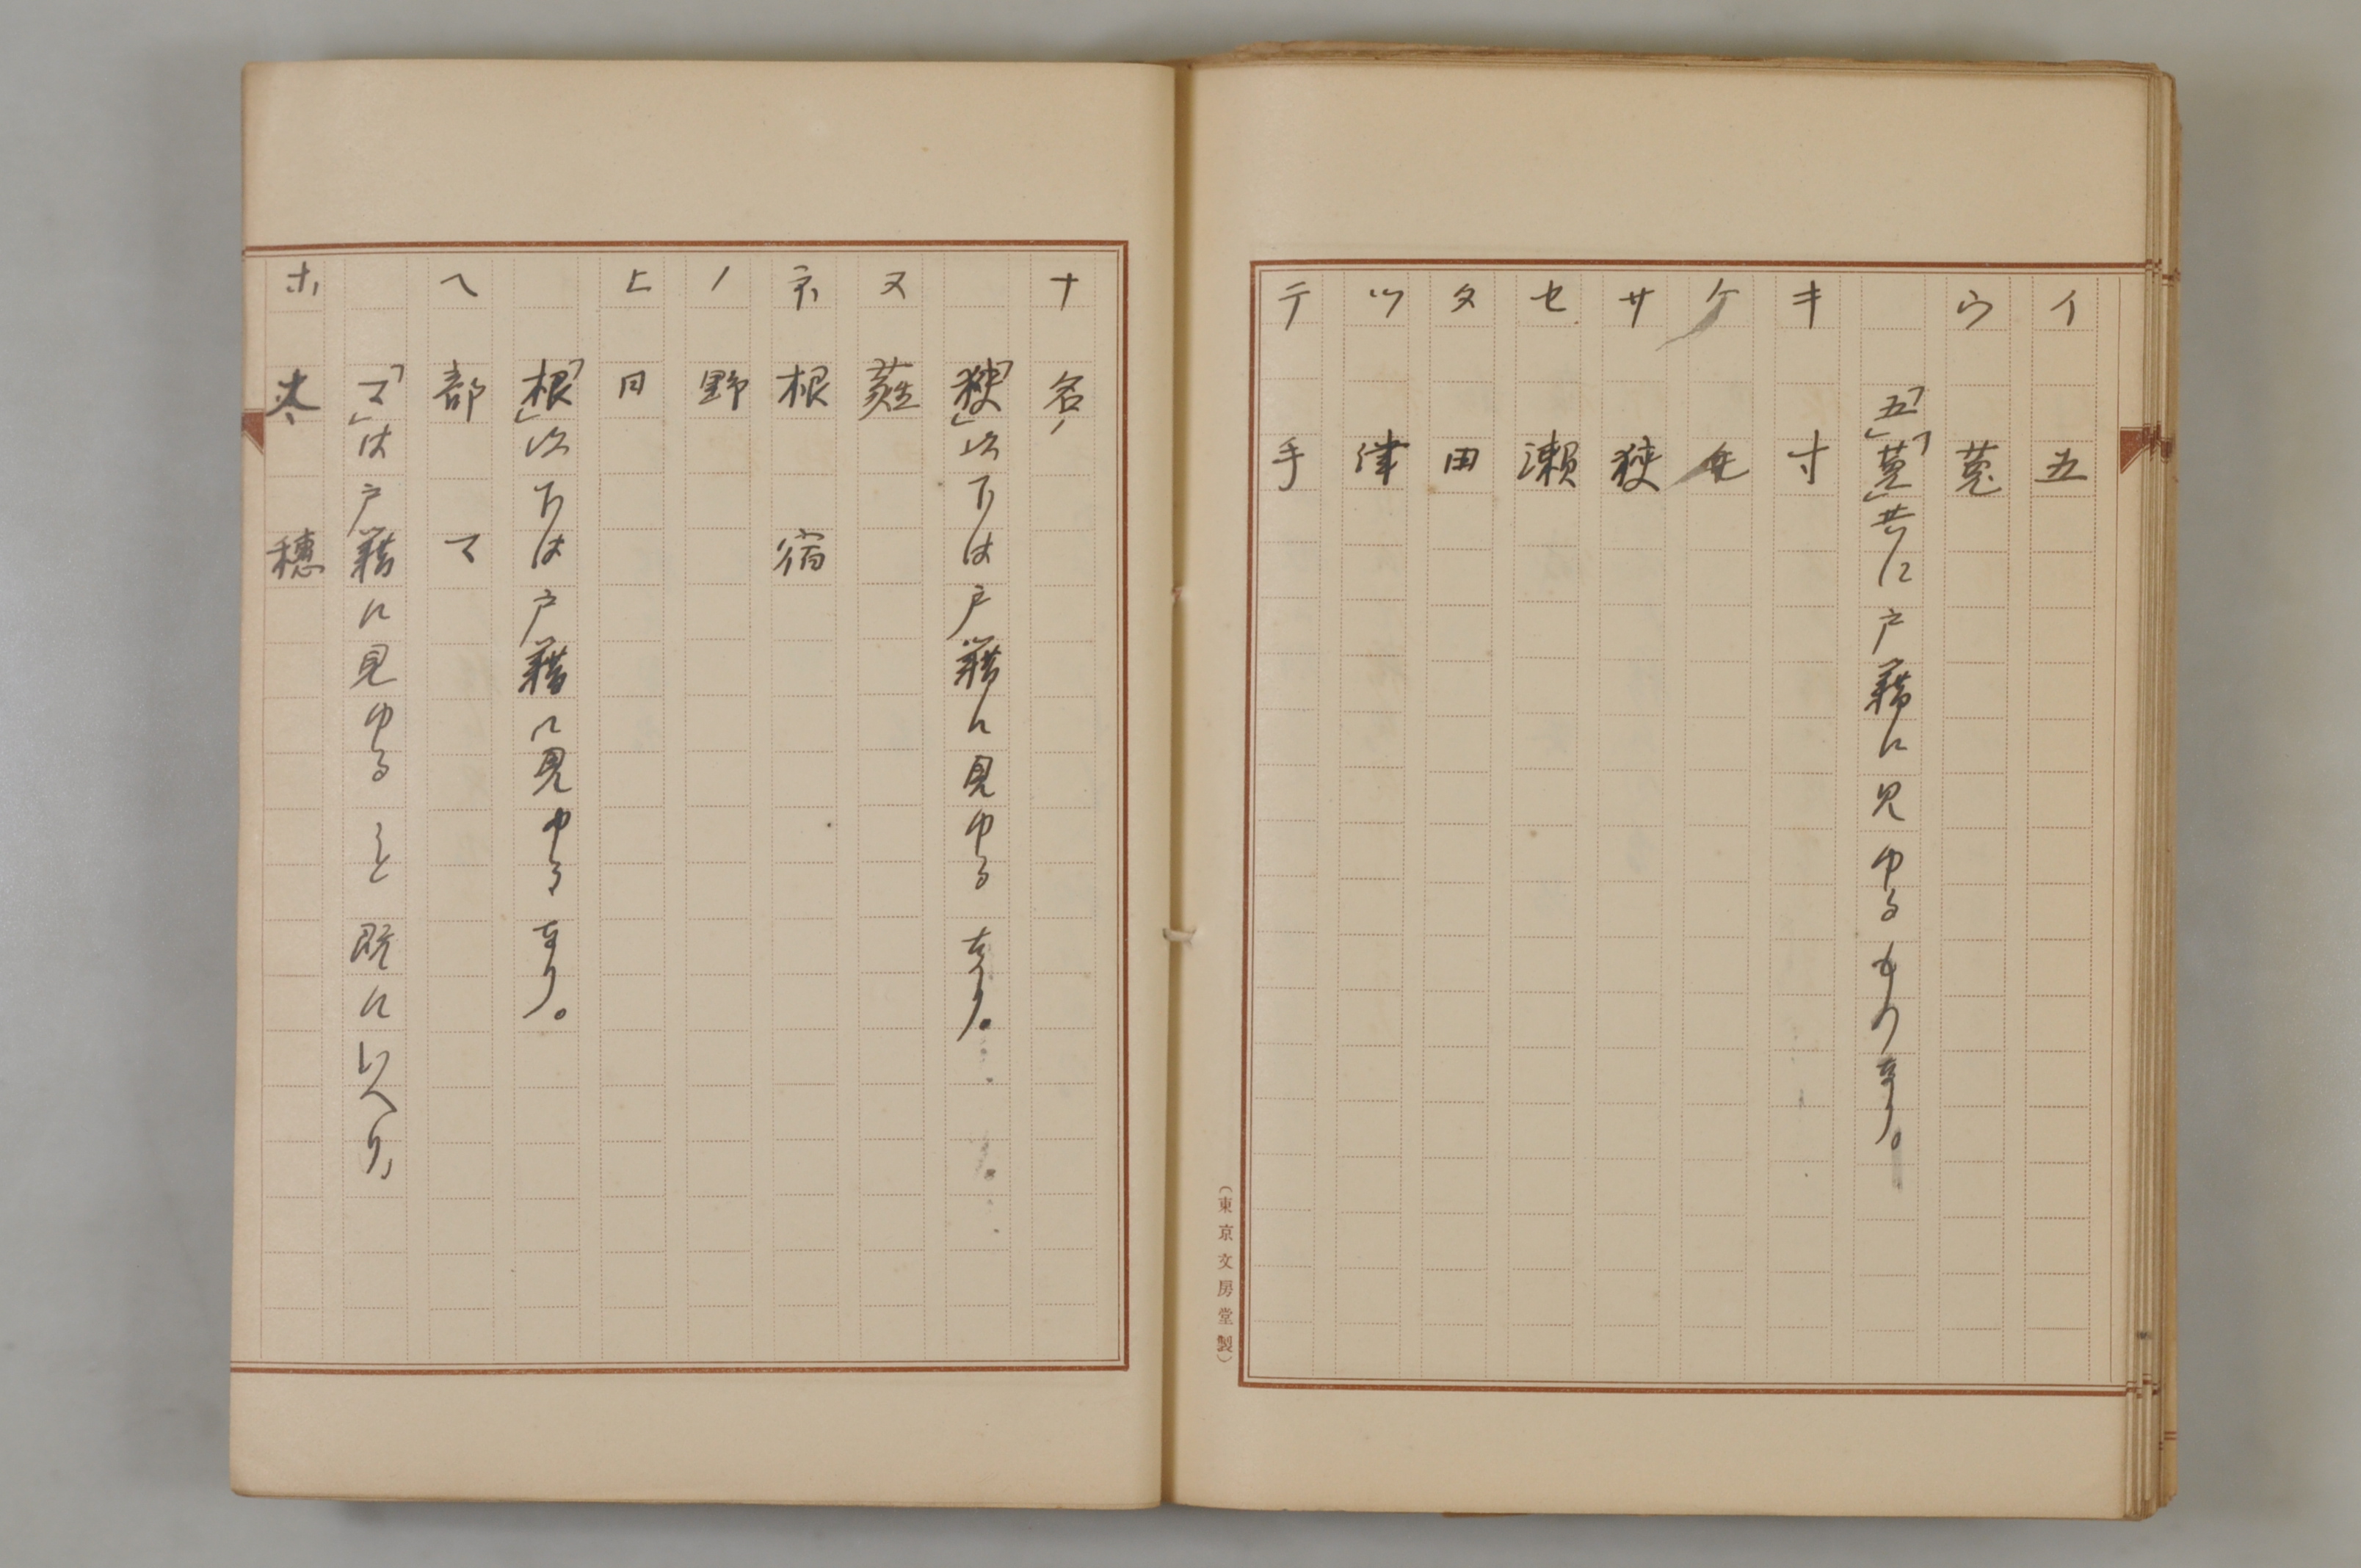 イ 五
ウ 菟
「五」「菟」共に戸籍に見ゆるものなり。
キ 寸
ケ
サ 狭
セ 瀬
タ 田
ツ 津
テ 手
(東京文房堂製)
ナ 名
「狭」以下は戸籍に見ゆるなり。
ヌ 蕤
ネ 根 宿
ノ 野
ヒ 日
「根」以下は戸籍に見ゆるなり。
ヘ 部 マ
「マ」は戸籍に見ゆること既にいへり、
ホ 太 穂